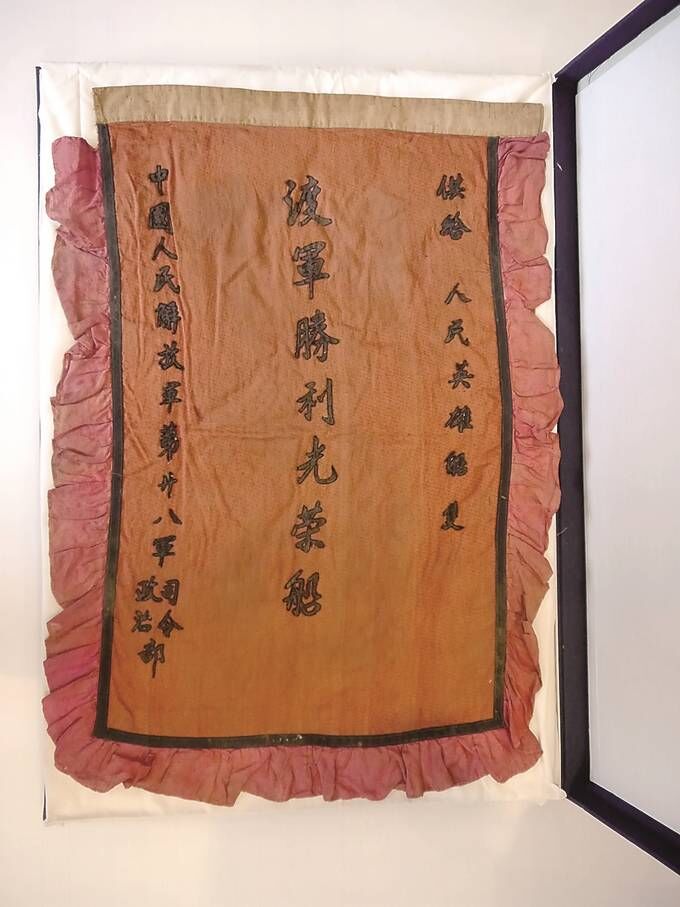 供給 人民英雄
渡軍勝利光荣船
中國人民解放軍第廿八軍
司令
政治
部